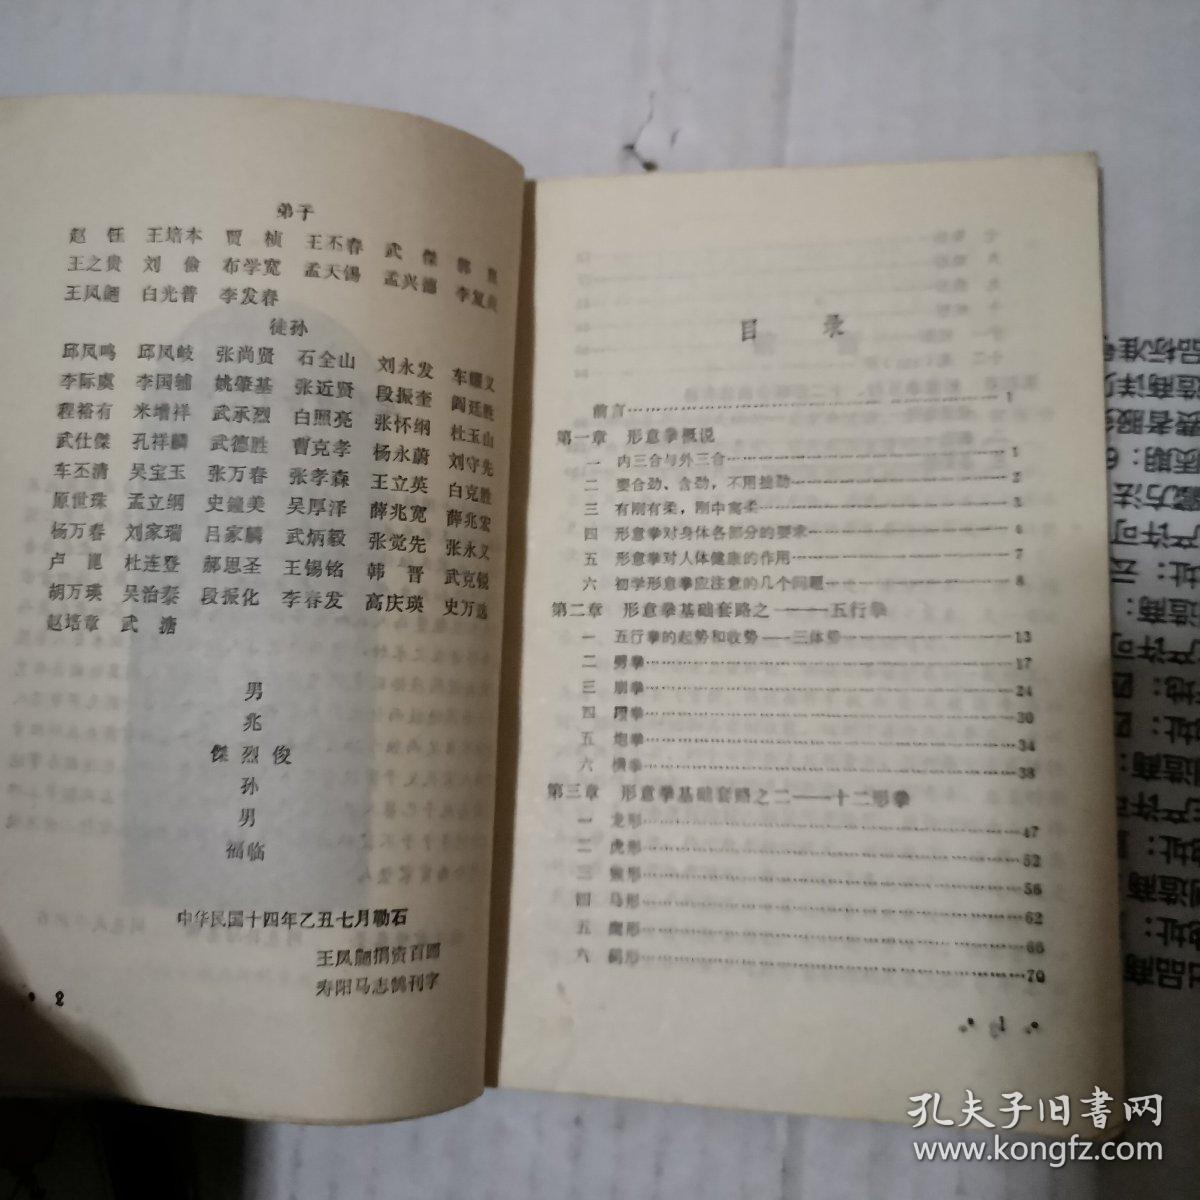 弟子
赵 钰 王培本 贾 桢 王丕春 武 傑 郭
王之贵 刘 俭 布学宽 孟天锡 孟兴德 李复
王凤翽 白光普 李发春
徒孙
邱凤鸣 邱凤岐 张尚贤 石全山 刘永发 车耀义
李际虞 李国辅 姚肇基 张近贤 段振奎 阎廷胜
程裕有 米增祥 武承烈 白照亮 张怀纲 杜玉山
武仕傑 孔祥麟 武德胜 曹克孝 杨永蔚 刘守先
车丕清 吴宝玉 张万春 张孝森 王立英 白克胜
原世珠 孟立纲 史鐘美 吴厚泽 薛兆宽 薛兆宏
杨万春 刘家瑞 吕家麟 武炳毅 张觉先 张永义
卢 崑 杜连登 郝思圣 王锡铭 韩 晋 武克锐
胡万瑛 吴治泰 段振化 李春发 高庆瑛 史万选
赵培章 武 溏
男
兆
傑 烈 俊
孙
男
福临
中华民国十四年乙丑七月勒石
王凤翽捐资百圆
寿阳马志鹄刊字
2
目 录
前言……1
第一章 形意拳概说
一 内三合与外三合……1
二 要合劲、含劲，不用拙劲……2
三 有刚有柔，刚中寓柔……3
四 形意拳对身体各部分的要求……4
五 形意拳对人体健康的作用……7
六 初学形意拳应注意的几个问题……8
第二章 形意拳基础套路之一——五行拳
一 五行拳的起势和收势——三体势……13
二 劈拳……17
三 崩拳……24
四 躜拳……30
五 炮拳……34
六 横拳……38
第三章 形意拳基础套路之二——十二形拳
一 龙形……47
二 虎形……52
三 猴形……56
四 马形……62
五 鼍形……66
六 鸡形……70
1
孔夫子旧书网
www.kongfz.com